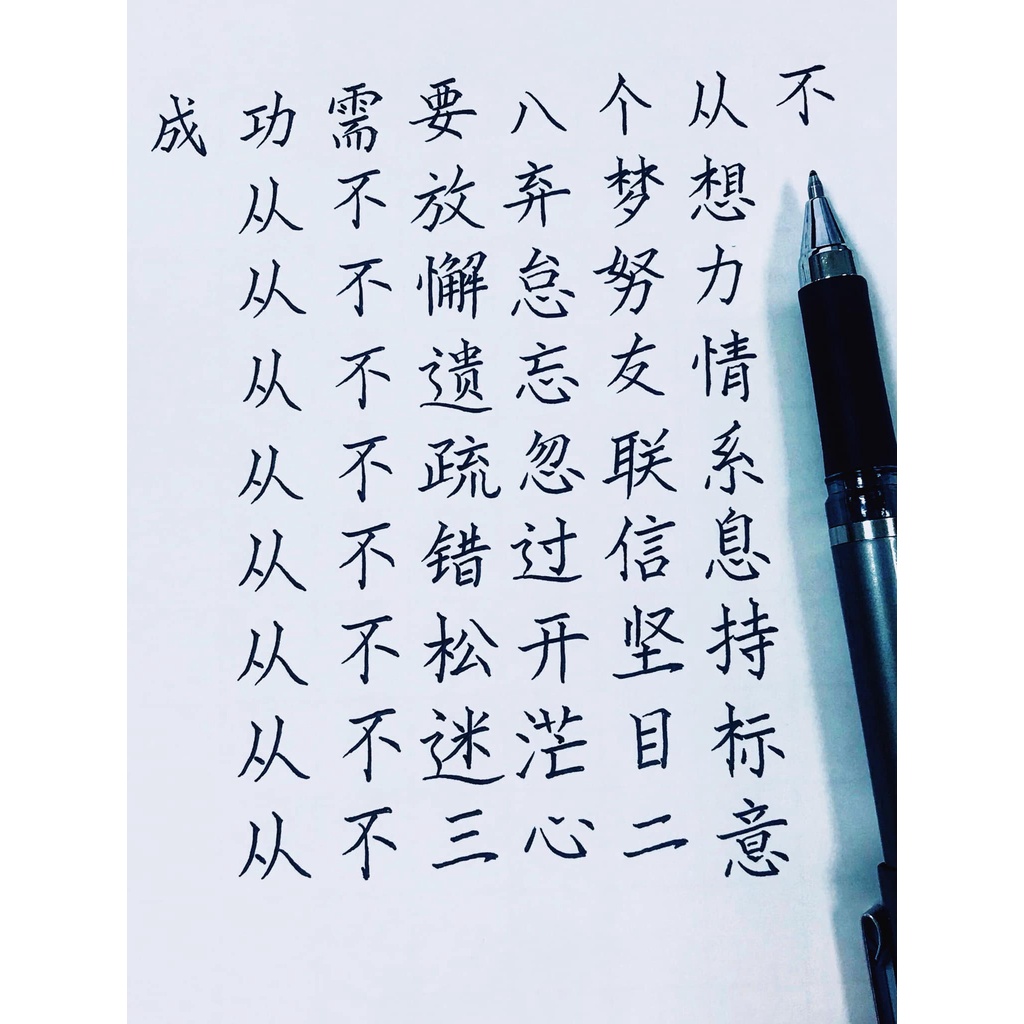 成功需要八个从不
从不放弃梦想
从不懈怠努力
从不遗忘友情
从不疏忽联系
从不错过信息
从不松开坚持
从不迷茫目标
从不三心二意